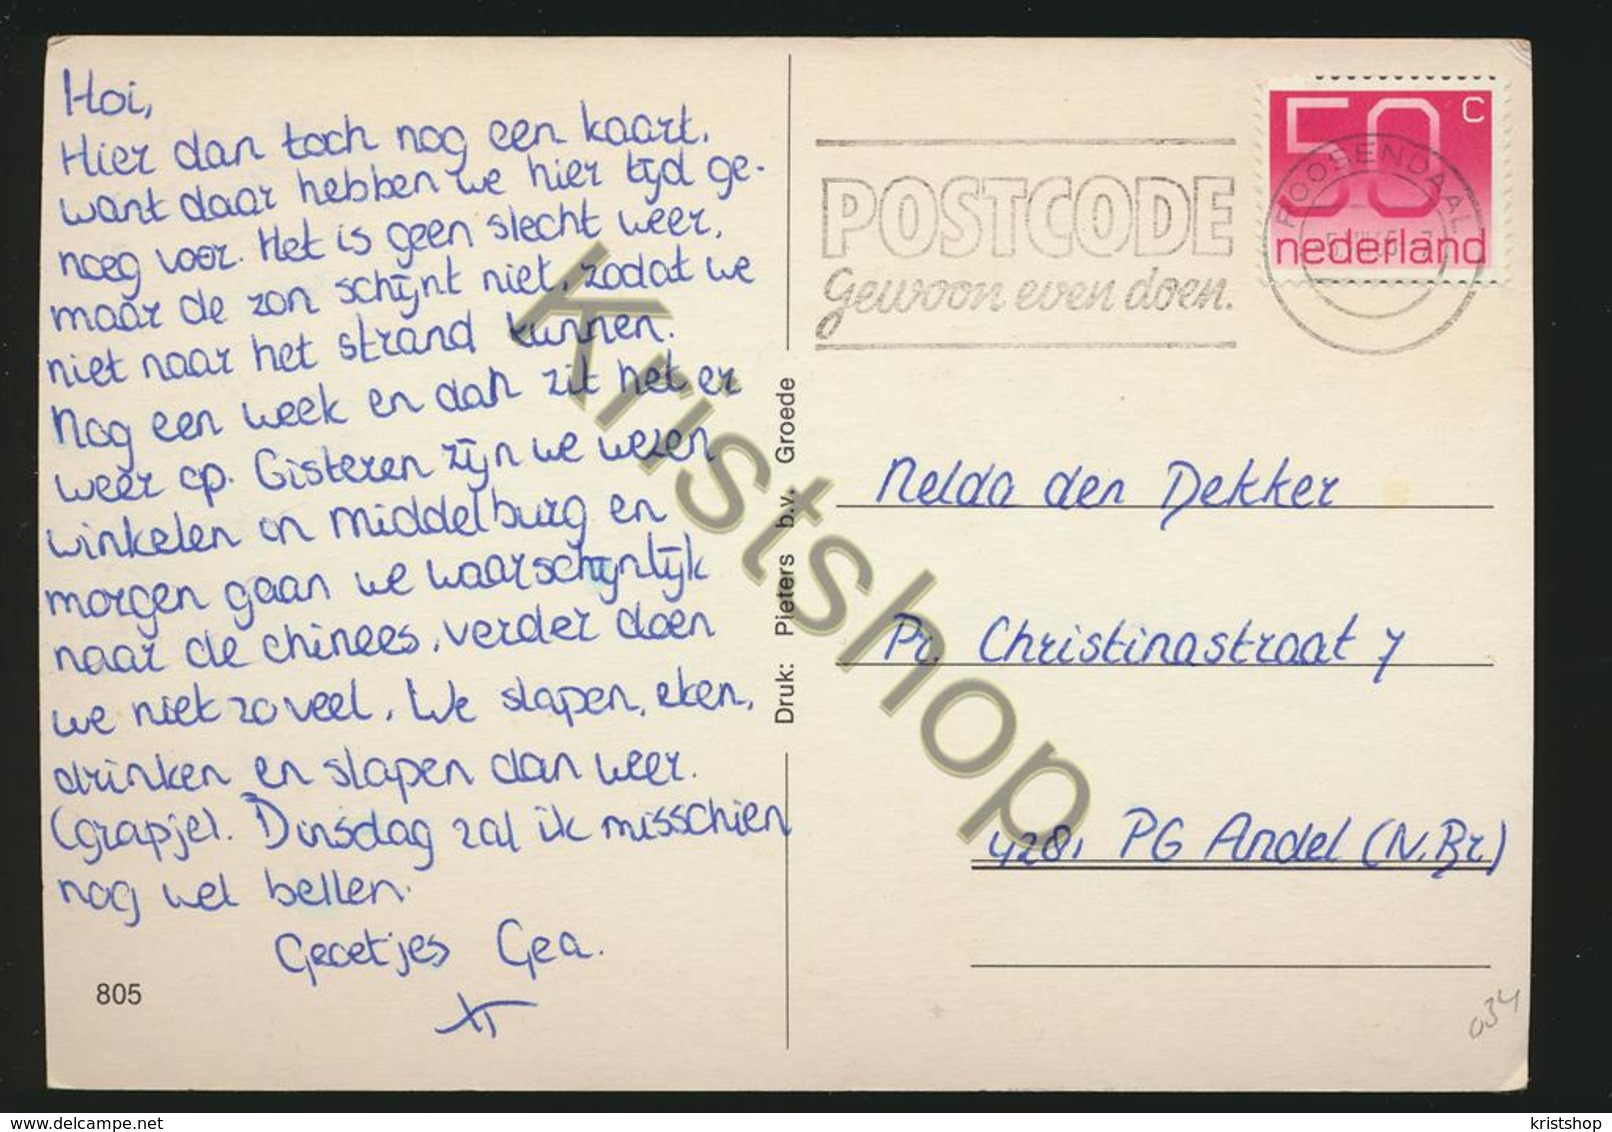 Hoi,
Hier dan toch nog een kaart,
want daar hebben we hier tijd ge-
noeg voor. Het is geen slecht weer,
maar de zon schijnt niet, zodat we
niet naar het strand kunnen.
Nog een week en dan zit het er
weer op. Gisteren zijn we wezen
winkelen in Middelburg en
morgen gaan we waarschijnlijk
naar de chinees, verder doen
we niet zoveel. We slapen, eten,
drinken en slapen dan weer.
(grapje). Dinsdag zal ik misschien
nog wel bellen.
Groetjes Gea.
805
Druk: Pieters b.v. Groede
POSTCODE
Gewoon even doen.
50 c
nederland
ROOSENDAAL
Nelda den Dekker
Pr. Christinastraat 7
4281 PG Andel (N.Br.)
034
Kristshop
www.delcampe.net
kristshop